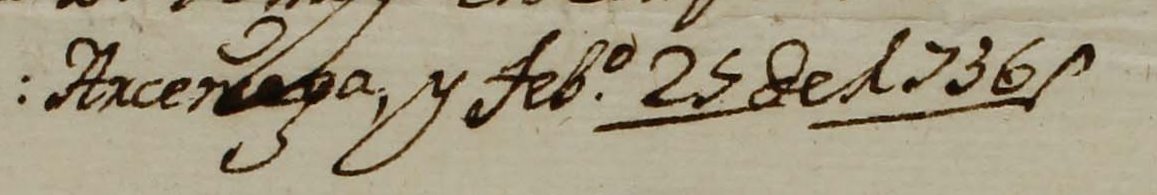 : Arceniega, y feb.º 25 de 1736